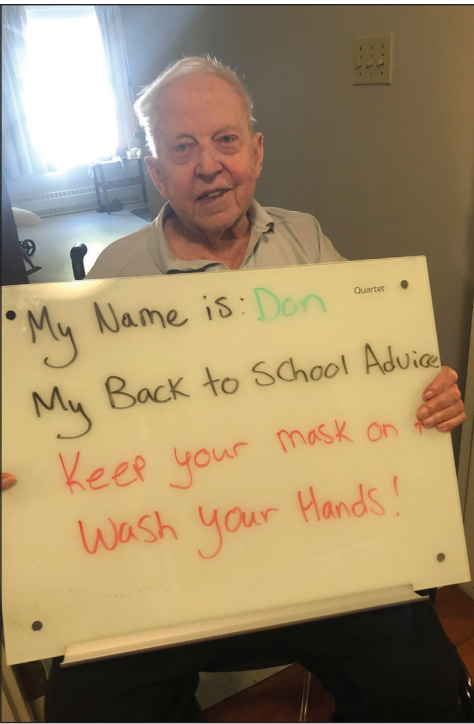 Quartet
My Name is: Don
My Back to School Advice
Keep your mask on +
Wash your Hands!